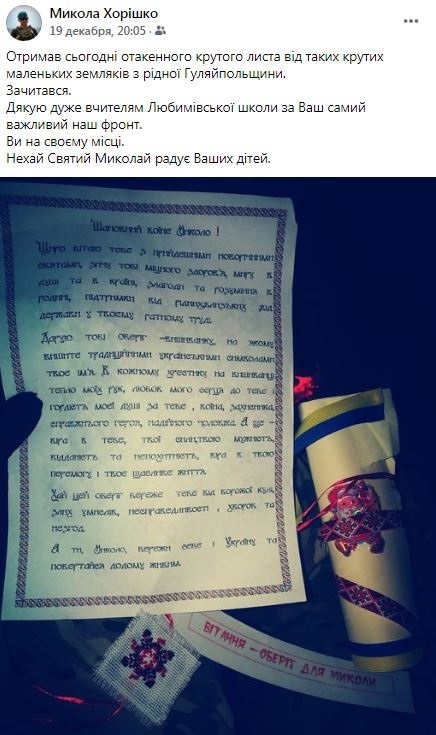 Микола Хорішко
19 декабря, 20:05 ·
Отримав сьогодні отакенного крутого листа від таких крутих
маленьких земляків з рідної Гуляйпольщини.
Зачитався.
Дякую дуже вчителям Любимівської школи за Ваш самий
важливий наш фронт.
Ви на своєму місці.
Нехай Святий Миколай радує Ваших дітей.
Шановний воїне Миколо !
Щиро вітаю тебе з прийдешніми новорічними
святами, зичу тобі міцного здоров'я, миру в
душі та в країні, злагоди та розуміння в
родині, підтримки від гуляйпільських від
держави у твоєму ратному труді.
Дарую тобі оберіг –вишиванку, на якому
вишите традиційними українськими символами
твоє ім'я. В кожному хрестику на вишиванці
тепло моїх рук, любов мого серця до тебе і
гордість моєї душі за тебе , воїна, захисника,
справжнього героя, надійного чоловіка. А ще –
віра в тебе, твої мужність,
відданість та непохитність, віра в твою
перемогу і твоє щасливе життя.
Хай цей оберіг береже тебе від ворожої кулі,
злих умислів, несправедливості , хвороб та
негод.
А ти, Миколо, бережи себе і Україну та
повертайся додому живим.
ВІТАННЯ – ОБЕРІГ ДЛЯ МИКОЛИ